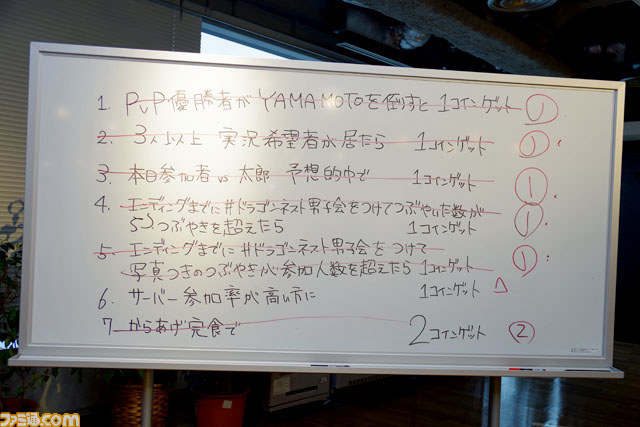 1. PvP優勝者がYAMAMOTOを倒すと 1コインゲット ①
2. 3人以上 実況希望者が居たら 1コインゲット ①
3. 本日参加者 vs 太郎 予想的中で 1コインゲット ①
4. エンディングまでに#ドラゴンネスト男子会をつけてつぶやいた数が
つぶやきを超えたら 1コインゲット ①
5. エンディングまでに#ドラゴンネスト男子会をつけて
写真つきのつぶやきが参加人数を超えたら 1コインゲット ①
6. サーバー参加率が高い方に 1コインゲット △
7 からあげ完食で 2コインゲット ②
ファミ通.com